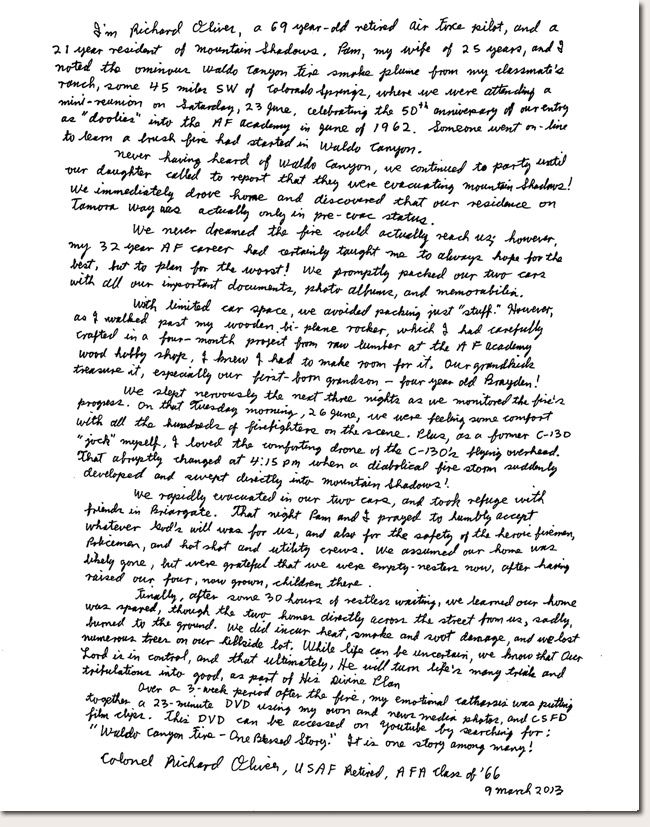 I'm Richard Oliver, a 69 year-old retired Air Force pilot, and a
21 year resident of Mountain Shadows. Pam, my wife of 25 years, and I
noted the ominous Waldo Canyon Fire smoke plume from my classmate's
ranch, some 45 miles SW of Colorado Springs, where we were attending a
mini-reunion on Saturday, 23 June, celebrating the 50th anniversary of our entry
as "doolies" into the AF Academy in June of 1962. Someone went on-line
to learn a brush fire had started in Waldo Canyon.
Never having heard of Waldo Canyon, we continued to party until
our daughter called to report that they were evacuating Mountain Shadows!
We immediately drove home and discovered that our residence on
Tamora Way was actually only in pre-evac status.
We never dreamed the fire could actually reach us; however,
my 32 year AF career had certainly taught me to always hope for the
best, but to plan for the worst! We promptly packed our two cars
with all our important documents, photo albums, and memorabilia.
With limited car space, we avoided packing just "stuff." However,
as I walked past my wooden, bi-plane rocker, which I had carefully
crafted in a four-month project from raw lumber at the AF Academy
wood hobby shop, I knew I had to make room for it. Our grandkids
treasure it, especially our first-born grandson - four year old Brayden!
We slept nervously the next three nights as we monitored the fire's
progress. On that Tuesday morning, 26 June, we were feeling some comfort
with all the hundreds of firefighters on the scene. Plus, as a former C-130
"jock" myself, I loved the comforting drone of the C-130's flying overhead.
That abruptly changed at 4:15 PM when a diabolical fire storm suddenly
developed and swept directly into Mountain Shadows!
We rapidly evacuated in our two cars, and took refuge with
friends in Briargate. That night Pam and I prayed to humbly accept
whatever God's will was for us, and also for the safety of the heroic firemen,
Policemen, and hot shot and utility crews. We assumed our home was
likely gone, but were grateful that we were empty-nesters now, after having
raised our four, now grown, children there.
Finally, after some 30 hours of restless waiting, we learned our home
was spared, though the two homes directly across the street from us, sadly,
burned to the ground. We did incur heat, smoke and soot damage, and we lost
numerous trees on our hillside lot. While life can be uncertain, we know that Our
Lord is in control, and that ultimately, He will turn life's many trials and
tribulations into good, as part of His Divine Plan
Over a 3-week period after the fire, my emotional catharsis was putting
together a 23-minute DVD using my own and news media photos, and CSFD
film clips. This DVD can be accessed on Youtube by searching for:
"Waldo Canyon Fire - One Blessed Story." It is one story among many!
Colonel Richard Oliver, USAF Retired, AFA Class of '66
9 March 2013